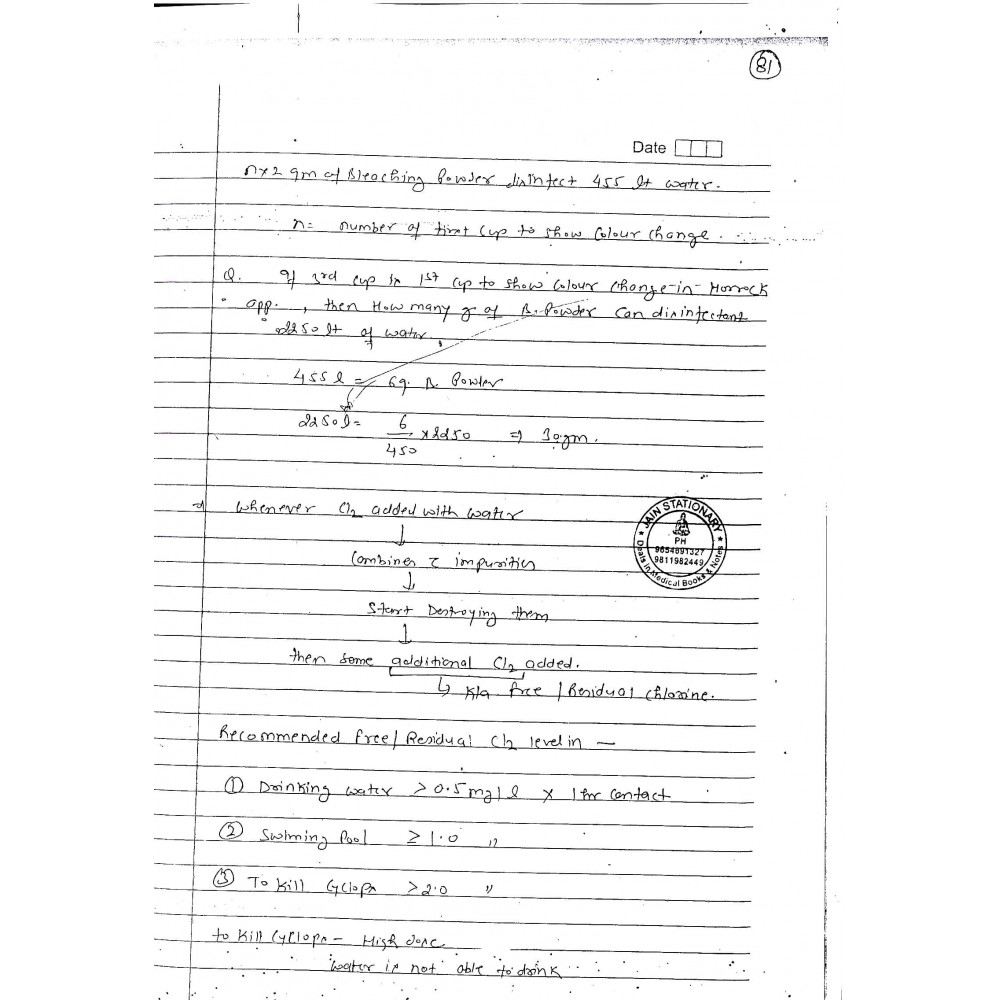 81
Date
n×2 gm of Bleaching Powder disinfect 455 lt water.
n= number of first cup to show colour change.
Q. If 3rd cup is 1st cup to show colour change in Horrock
app., then How many g of B. Powder can disinfectant
2250 lt of water.
455 l = 6g. B. Powder
2250l = 6/450 ×2250 ⇒ 30gm.
⇒ Whenever Cl2 added with water
↓
Combines c̄ impurities
↓
Start Destroying them
↓
then some additional Cl2 added.
↳ K/a free / Residual chlorine.
Recommended free/Residual Cl2 level in —
① Drinking water > 0.5 mg/l × 1 hr contact
② Swiming Pool ≥ 1.0 "
③ To Kill Cyclops > 2.0 "
to Kill Cyclops - High dose
water is not able to drink
JAIN STATIONARY
PH
9654691327
9811982449
Deals in Medical Books & Notes